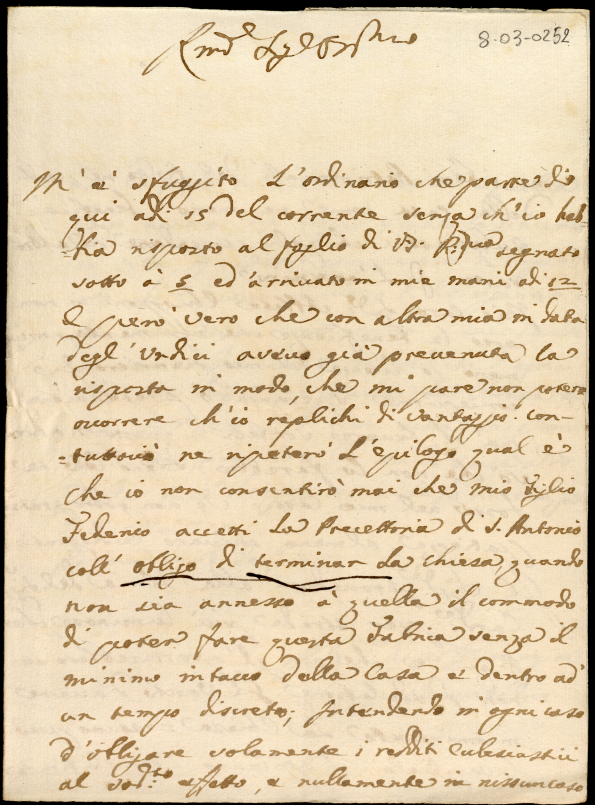 8-03-0252
M' è sfuggito L'ordinario che parte di
qui adi 15 del corrente senza ch'io hab-
bia risposto al foglio di V. R.ma segnato
sotto à 5 ed' arrivato in mie mani adi 12
È però vero che con altra mia in data
degl' Undici avevo già prevenuta la
risposta in modo, che mi pare non potere
occorrere ch'io replichi di vantaggio. con-
-tuttociò ne ripeterò L'epilogo qual è
che io non consentirò mai che mio Figlio
Federico accetti La Precettoria di S. Antonio
coll' obligo di terminar La chiesa quando
non sia annesso à quella il commodo
di poter fare questa Fabrica senza il
minimo intacco della Casa e dentro ad'
un tempo discreto; Intendendo in ogni caso
d'obligare solamente i redditi eclesiastici
al sod.to effetto, e nullamente in nissun caso